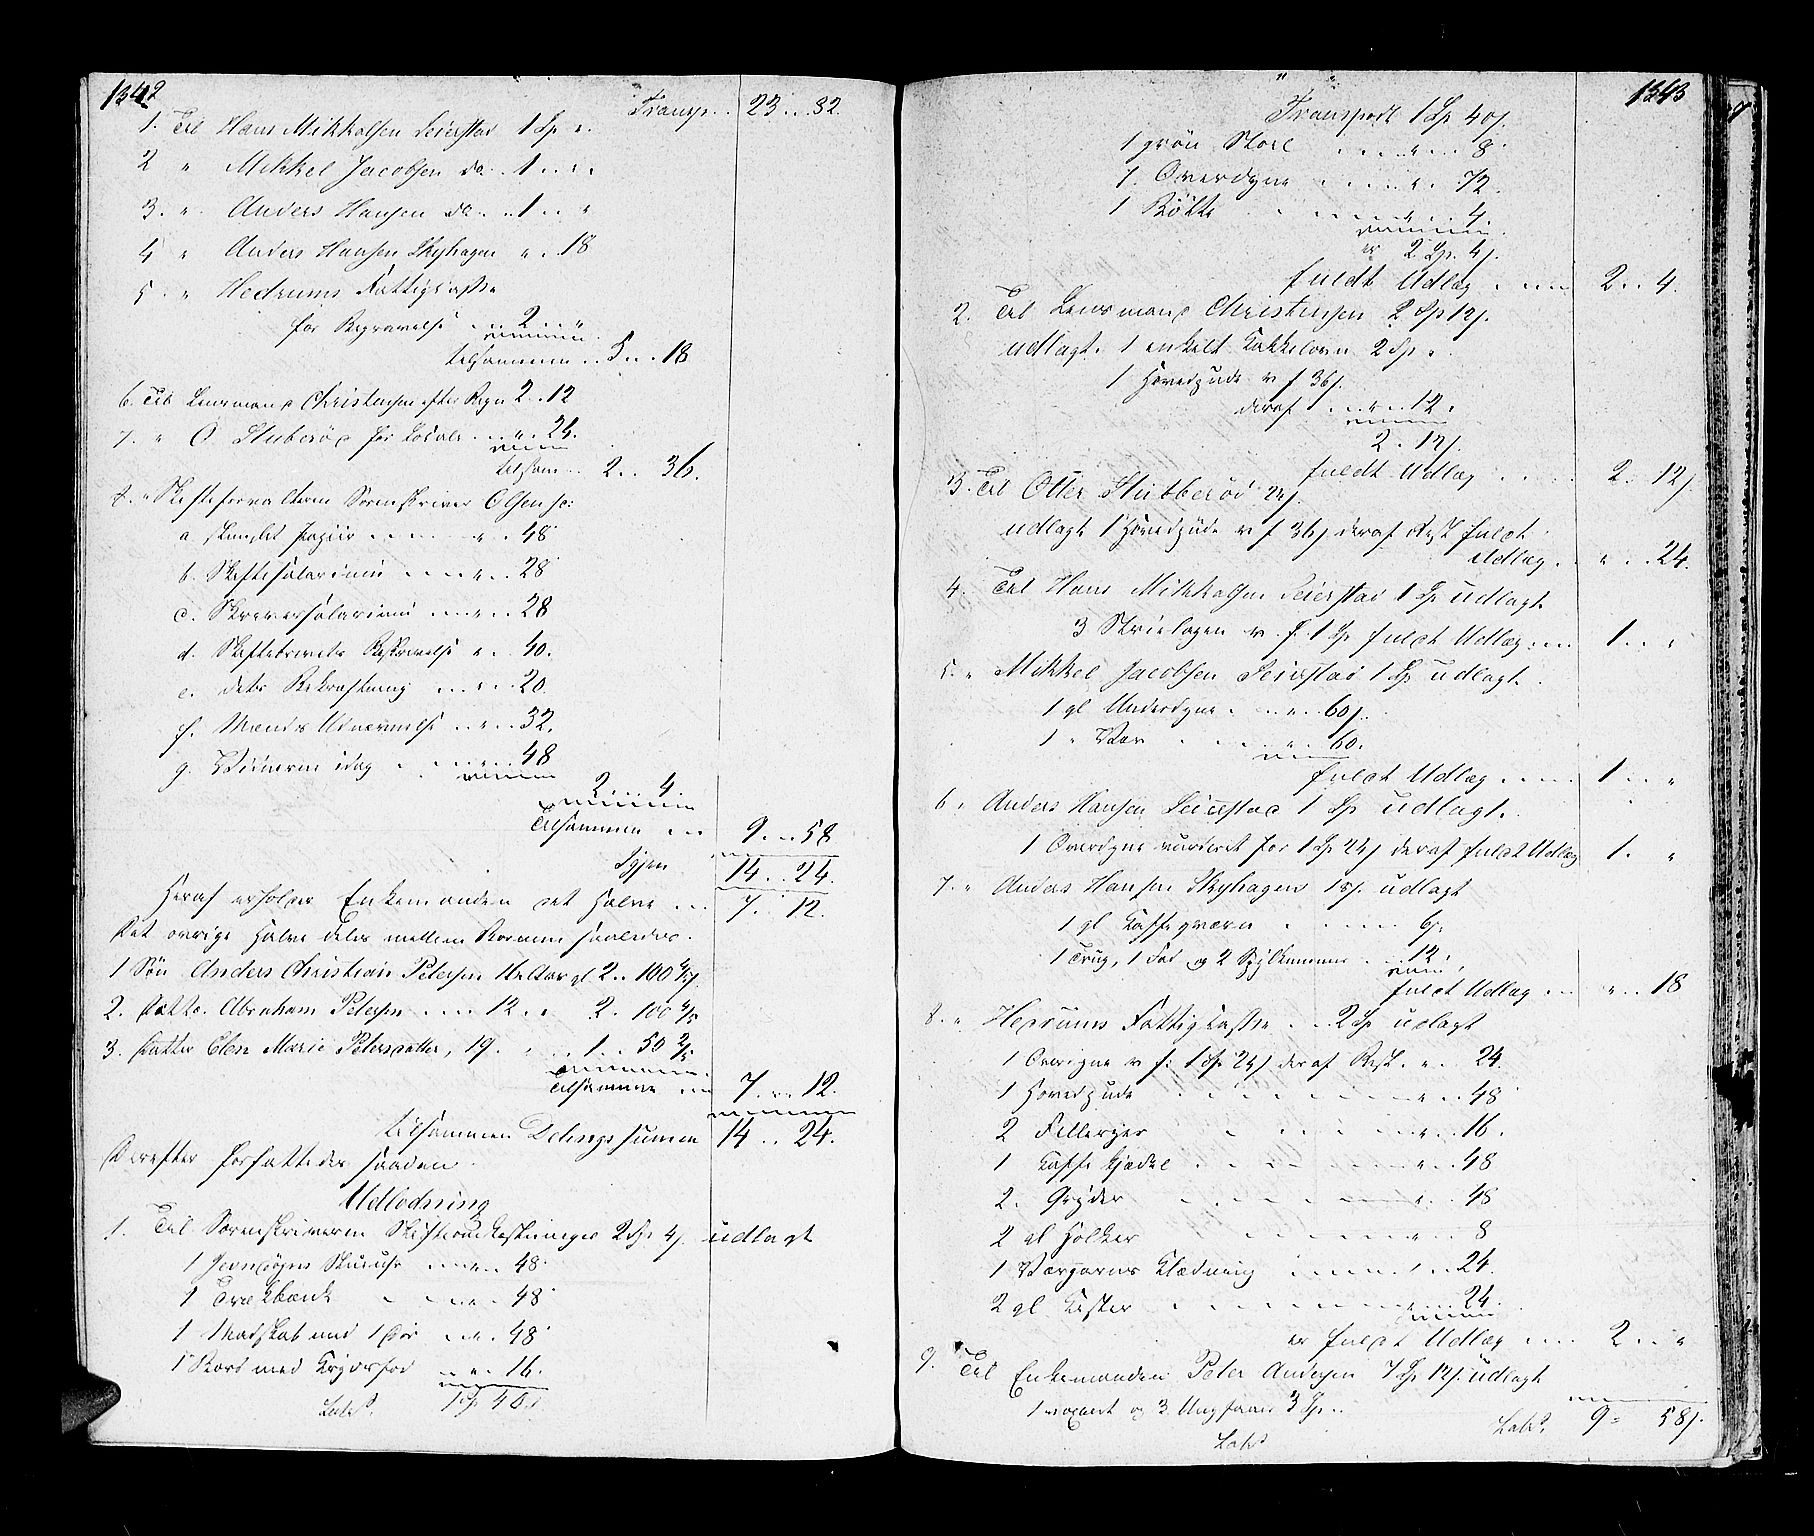 1342
Transp. . 23 . . 82.
1. Til Hans Mikkelsen Seierstad 1 Sp „.
2 „ Mikkel Jacobsen do. . 1 . . „
3. „. Anders Hansen do . . 1 . . „
4 „ Anders Hansen Skyhagen „ . 18
5. „ Hedrums Fattigkasse
for Begravelse . . 2 . . „
tilsammen . . 5 . . 18
6. Til Lensmand Christensen efter Regn 2 . . 12
7. „ O. Stuberød for Locale . . „ . 24.
tilsam . . 2 . . 36.
8. „ Skifteforvalteren Sorenskriver Olsen
a. stemplet Papiir . . . . „ . . 48
b. Skiftesalarium . . . . „ . . 28
c. Skriversalarium . . . . „ . . 28
d. Skiftebrevets Beskrivelse „ . . 40.
e. dets Bekræftning . . . „ . . 20.
f. Mænds Udnævnelse . . „ . . 32.
g. Vidnerne idag . . . . „ . . 48
2 . . . 4.
Tilsammen . . . 9 . . . 58
Igjen 14 . . 24.
Heraf erholder Enkemanden det halve . . . 7. . 12.
Det øvrige halve deles mellem Børnene saaledes.
1 Søn Anders Christian Petersen 16 Aar gl 2 . . 100 4/5
2. Datto. Abraham Petersen . . . . 12 . „ 2. 100 4/5
3. Datter Elen Marie Petersdatter, 19. „ . . 1 . . 50 2/5
Tilsammen . . . 7 . . . 12.
tilsammen Delings summa 14 . . 24.
Derefter forfattedes saadan
Udlodning
1. Til Sorenskriveren Skifteomkostninger 2 Sp 4 s. udlagt
48
1 Trækbænk . . . . . 48
1 Madskab med 1 Dør . . „ . . 48
1 Bord med Krydsfod . . „ . 16.
Lats. 1 Sp 40 s
1343
Transport 1 Sp 40 s.
1 grøn Stoel . . . . „ . . 8.
1. Overdyne . . . . . „ . . 72.
1 Bøtte . . . . . . „ . . 4.
er 2 Sp. 4 s.
fuldt Udlæg . . . . 2 . . 4.
2. Til Lensmand Christensen 2 Sp 12 s.
udlagt. 1 enkelt Kakkelovn 2 Sp „.
1 Hovedpude v f 36 s.
deraf . . . „ . . 12.
2. 12 s.
fuldt Udlæg . . . . . 2. . 12 s.
3. Til Otter Stuberød 24 s.
udlagt 1 Hovedpude v f 36 s deraf Rest fuldt
Udlæg . . „ . . 24.
4. Til Hans Mikkelsen Seierstad 1 Sp udlagt
3 Strielagen v. f. 1 Sp fuldt Udlæg . . . 1 . . „
5. „ Mikkel Jacobsen Seierstad 1 Sp udlagt.
1 gl Underdyne . . . „ . . 60 s.
1 „ Vær . . . . . „ . . 60.
fuldt Udlæg . . . . . 1 . . „
6. „ Anders Hansen Seierstad 1 Sp udlagt.
1 Overdyne vurderet for 1 Sp 24 s deraf fuldt Udlæg 1. „
7. „ Anders Hansen Skyhagen 18 s. udlagt
1 gl Kaffeqværn . . . . . 6 s.
1 Trug, 1 Fad og 2 . . 12.
fuldt Udlæg . . . „ . . 18
8. „ Hedrums Fattigkasse . . . 2 Sp udlagt
1 Overdyne v f: 1 Sp 24 s deraf Rest . „ . 24.
1 Hovedpude . . . . . . . „ . . 48
2 . . . . . „ . . 16.
1 Kaffe Kjedel . . . . . . . „ . . 48
2. Gryder . . . . . . . „ . . 48
2 gl Holker . . . . „ . . 8
1 Værgarns Klædning . . . . . „ . . 24.
2 gl Kister . . . . . . . „ . . 24.
er fuldt Udlæg . . . . 2 . . „
9. Til Enkemanden Peter Andersen 7 Sp 12 s. udlagt
1 og 3 3 Sp . .
Lats Lats. 9 = 58 s.